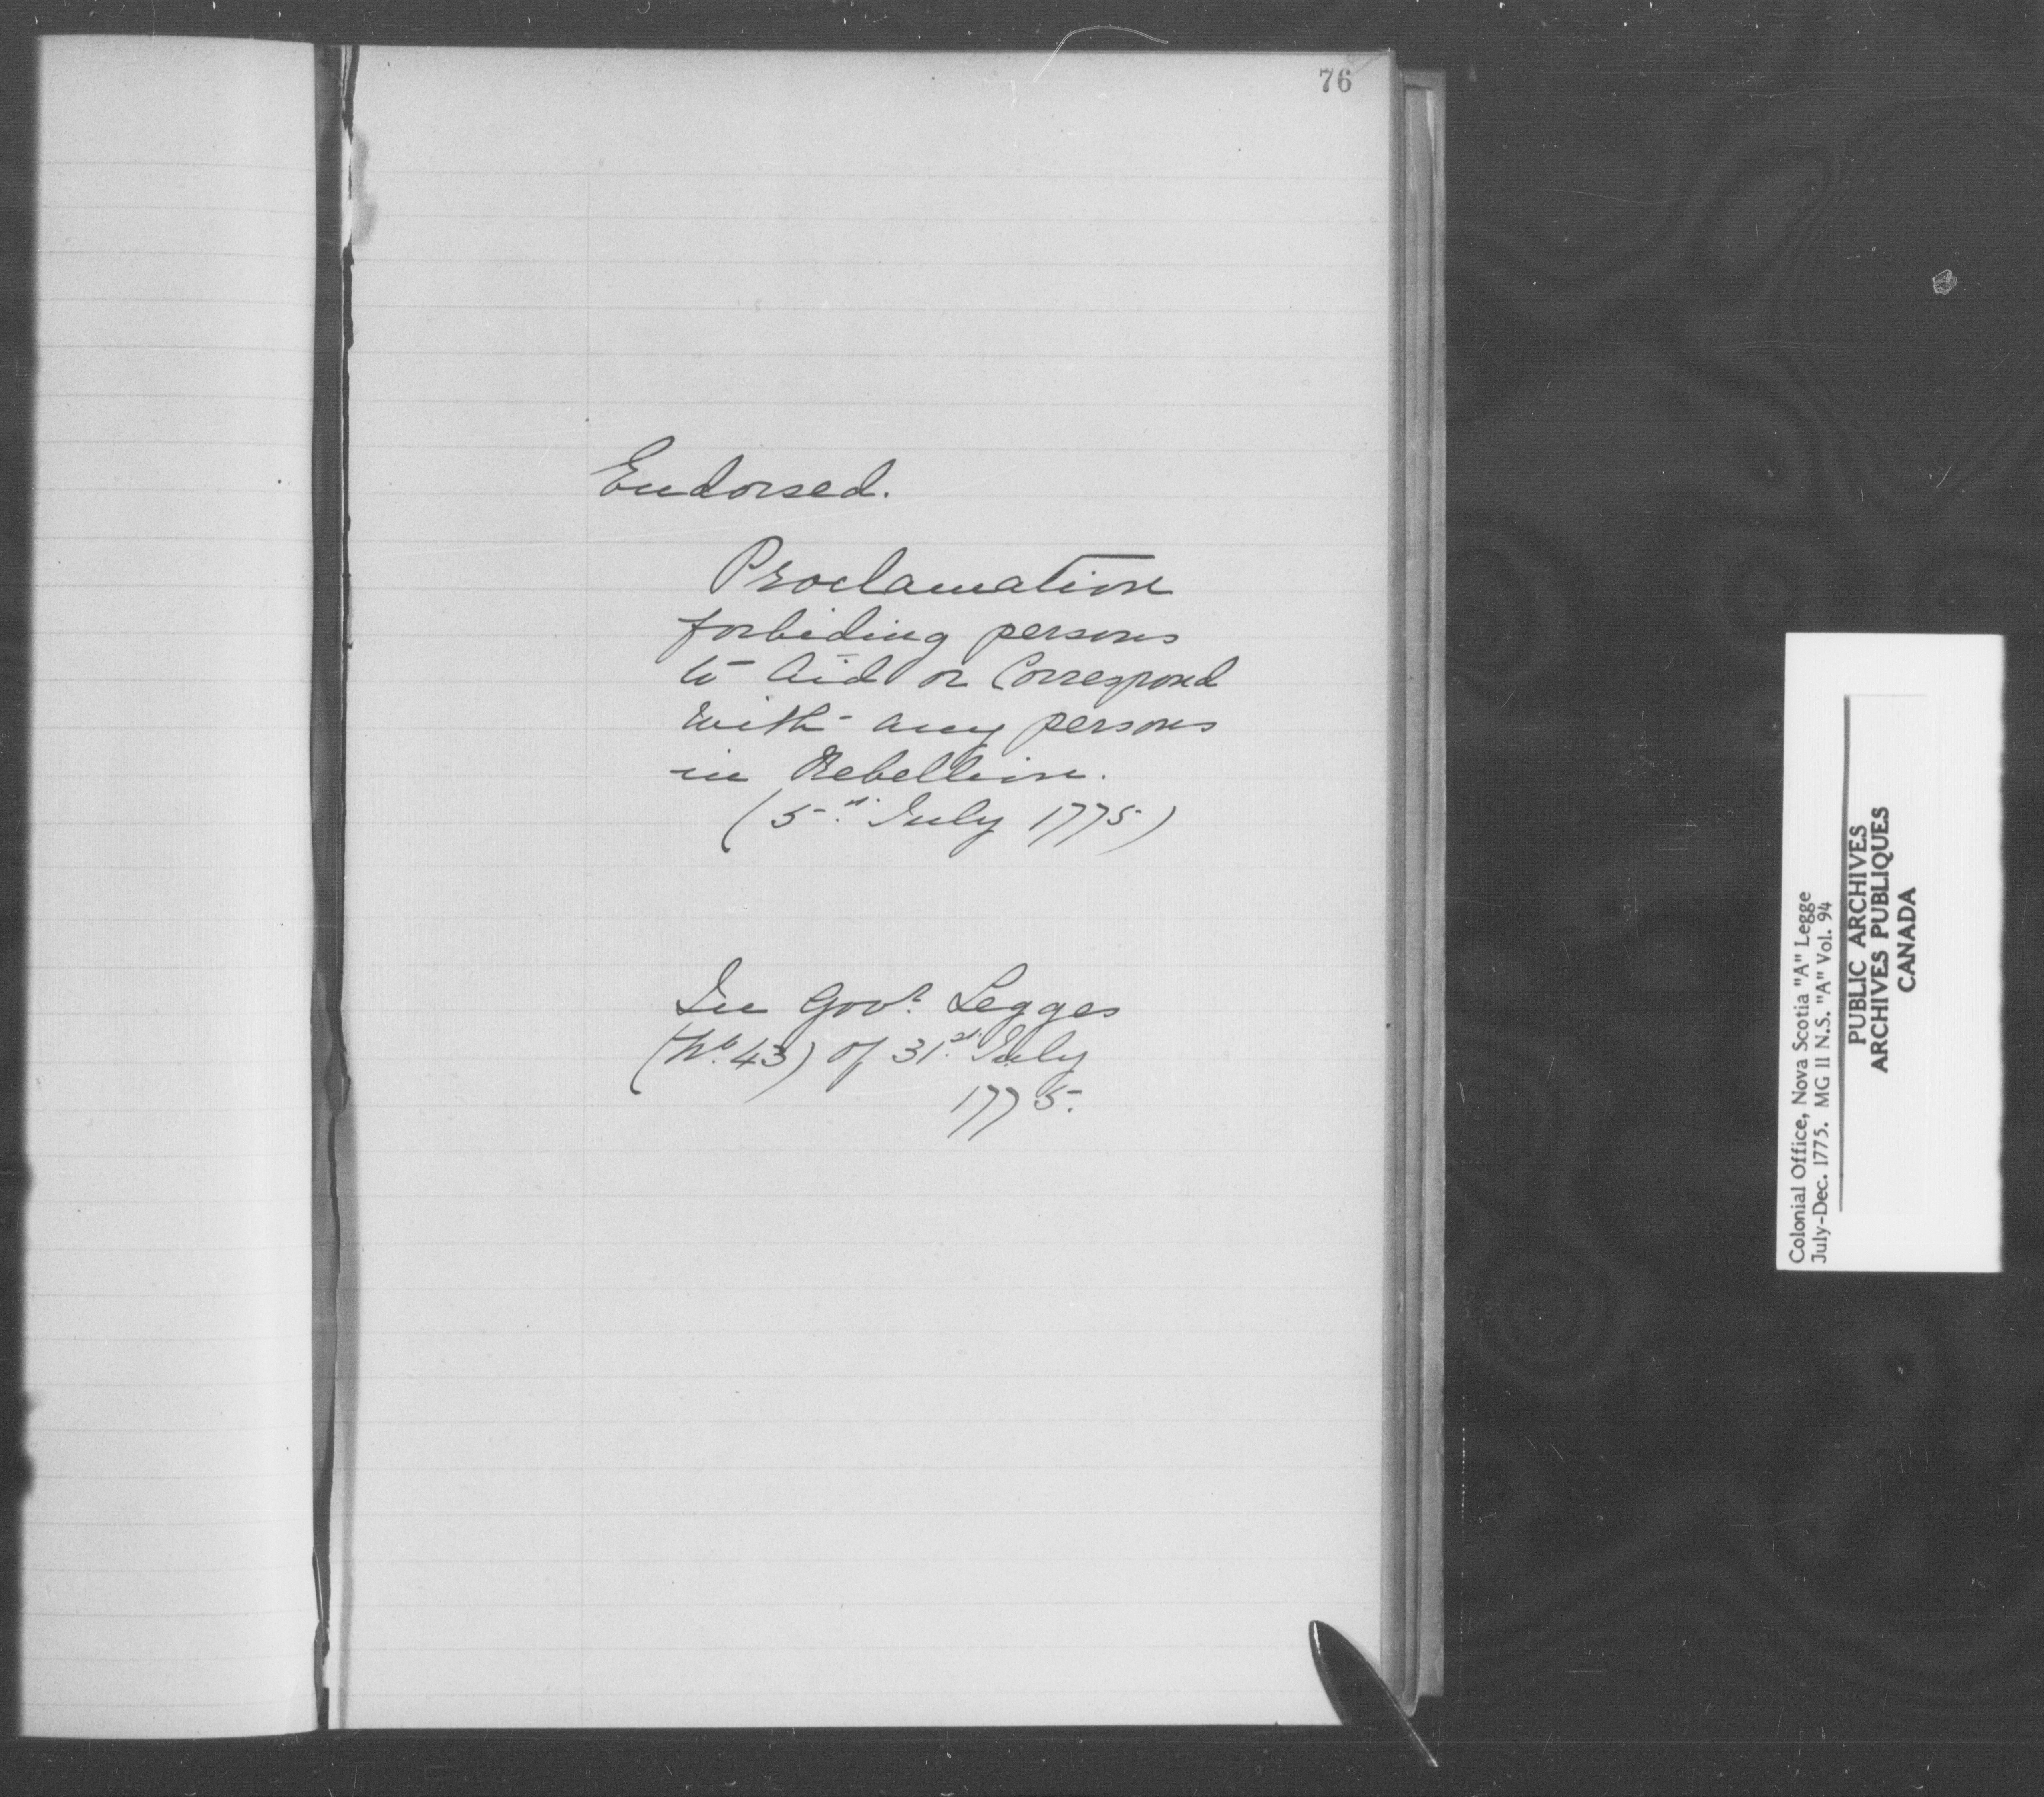 76
Endorsed.
Proclamation
forbiding persons
to Aid or Correspond
with any persons
in Rebellion.
(5th July 1775)
In Govr. Legges
(No. 43) of 31st. July
1775.
Colonial Office, Nova Scotia "A" Legge
July-Dec. 1775. MG 11 N.S. "A" Vol. 94
PUBLIC ARCHIVES
ARCHIVES PUBLIQUES
CANADA